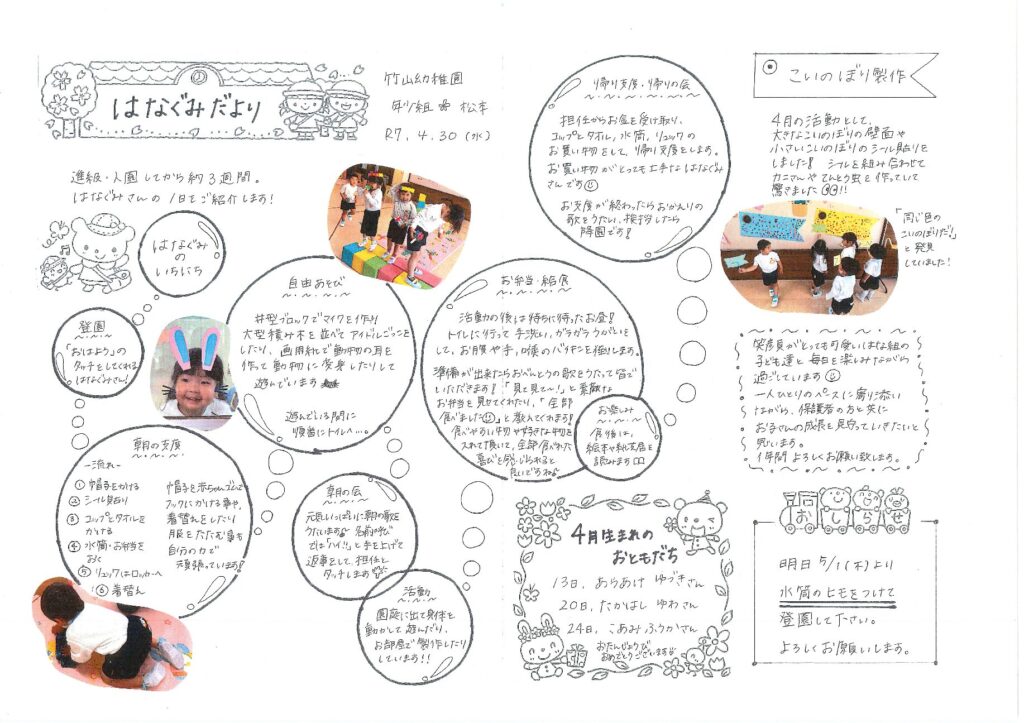 はなぐみだより
竹山幼稚園
松本
R7.4.30(水)
進級・入園してから約3週間。
はなぐみさんの1日をご紹介します!
はなぐみ
の
いちにち
登園
「おはよう」の
タッチをしてくれる
はなぐみさん!
朝の支度
〜流れ〜
①帽子をかける
②シール貼り
③コップとタオルを
かける
④水筒・お弁当を
おく
⑤リュックはロッカーへ
⑥着替え
フックにかける事や、
着替えをしたり
服をたたむ事も
自分の力で
頑張っています!
自由あそび
井型ブロックでマイクを作り
大型積み木を並べてアイドルごっこを
したり、画用紙で動物の耳を
作って動物に変身したりして
遊んでいます
遊んでいる間に
順番にトイレへ…。
朝の会
元気いっぱいに朝の歌を
うたいます♪ 名前呼び
では「ハイ!」と手を上げて
返事をして、担任と
タッチします
活動
園庭に出て身体を
動かして遊んだり、
お部屋で製作したり
しています!!
お弁当・給食
活動の後は待ちに待ったお昼!
トイレに行って手洗い、ガラガラうがいを
して、お腹や手、喉のバイキンを倒します。
準備が出来たらおべんとうの歌をうたって皆で
いただきます!「見て見て〜!」と素敵な
お弁当を見せてくれたり、「全部
食べました」と教えてくれます!
食べやすい物や好きな物を
入れて頂いて、全部食べれた
喜びを感じられると
良いですね♪
お楽しみ
食後は、
絵本や紙芝居を
読みます
帰り支度・帰りの会
担任からお金を受け取り、
コップとタオル、水筒、リュックの
お買い物をして、帰り支度をします。
お買い物がとっても上手なはなぐみ
さんです
お支度が終わったらおかえりの
歌をうたい、挨拶したら
降園です!
こいのぼり製作
4月の活動として、
大きなこいのぼりの壁面や
小さいこいのぼりのシール貼りを
しました! シールを組み合わせて
カニさんやてんとう虫を作っていて
驚きました!!
「同じ色の
こいのぼりだ!」
と発見
していました!
笑顔がとても可愛いはな組の
子ども達と毎日を楽しみながら
過ごしています
一人ひとりのペースに寄り添い
ながら、保護者の方と共に
お子さんの成長を見守っていきたいと
思います。
1年間よろしくお願い致します。
4月生まれの
おともだち
13日、あらあけ ゆづきさん
20日、たかはし ゆわさん
24日、こあみ ふうかさん
おたんじょうび
おめでとうございます
おしらせ
明日5/1(木)より
水筒のヒモをつけて
登園して下さい。
よろしくお願いします。